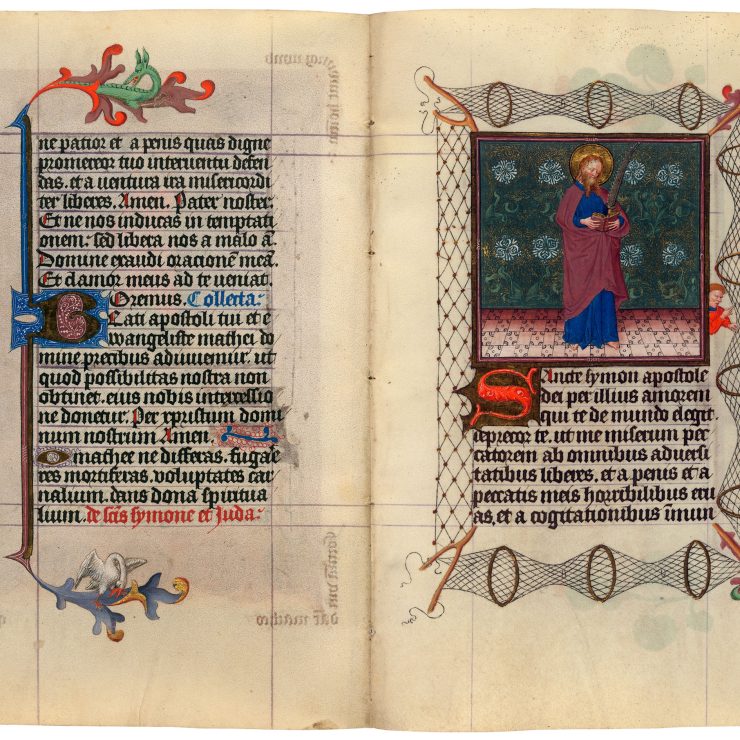 ne patior et a penis quas digne
promereor tuo interventu defen
das. et a ventura ira misericordi
ter liberes. Amen. Pater noster.
Et ne nos inducas in temptati
onem. sed libera nos a malo a.
Domine exaudi orationē meā.
Et clamor meus ad te veniat.
Oremus. Collecta.
BEati apostoli tui et e
wangeliste mathei do
mine precibus adiuvemur. ut
quod possibilitas nostra non
obtinet. eius nobis intercessio
ne donetur. Per xpristum domi
num nostrum Amen.
O mathee ne differas. fuga fe
res mortiferas. voluptates car
nalium. dans dona spiritua
lium. de scīs symone et Juda.
SAncte symon apostole
dei per illius amorem
qui te de mundo elegit.
deprecor te. ut me miserum pec
catorem ab omnibus adversi
tatibus liberes. et a penis et a
peccatis meis horribilibus eru
as, et a cogitationibus īmun